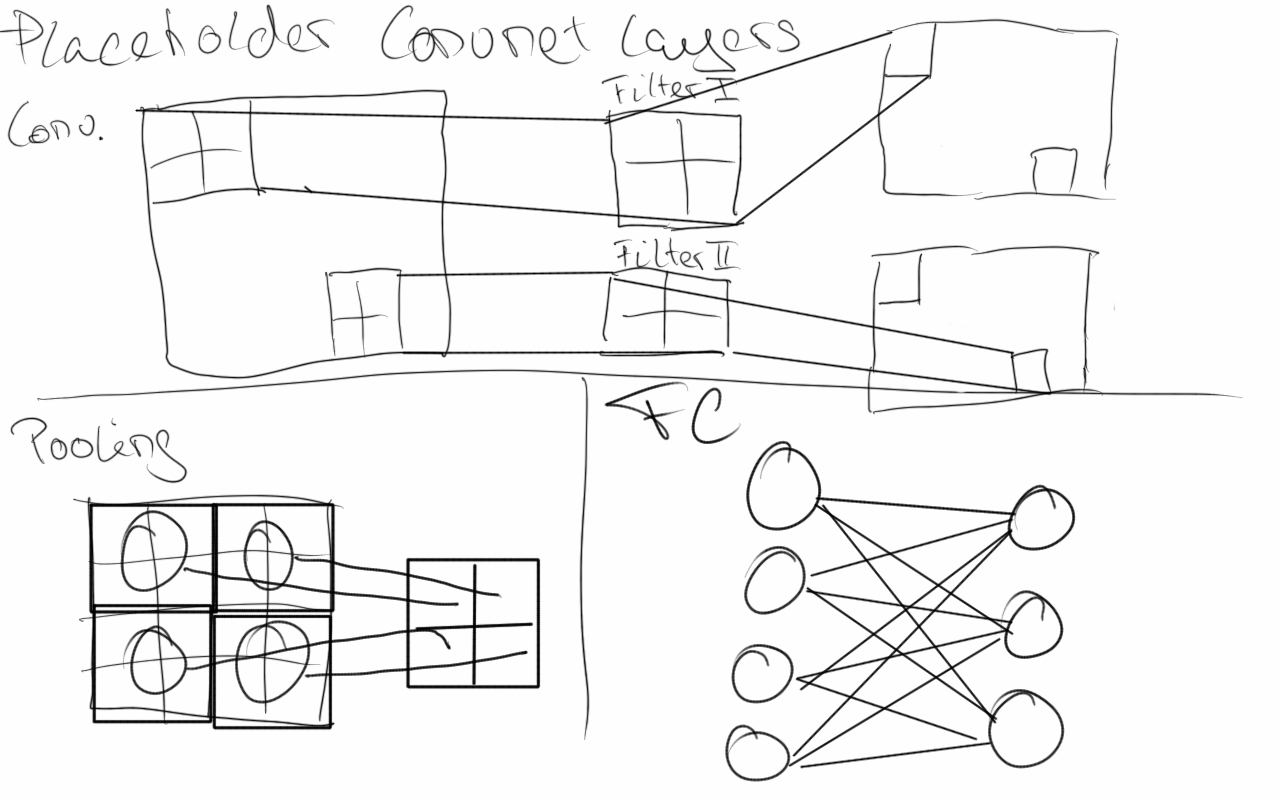 Placeholder Convnet Layers
Conv.
Filter I
Filter II
Pooling
FC